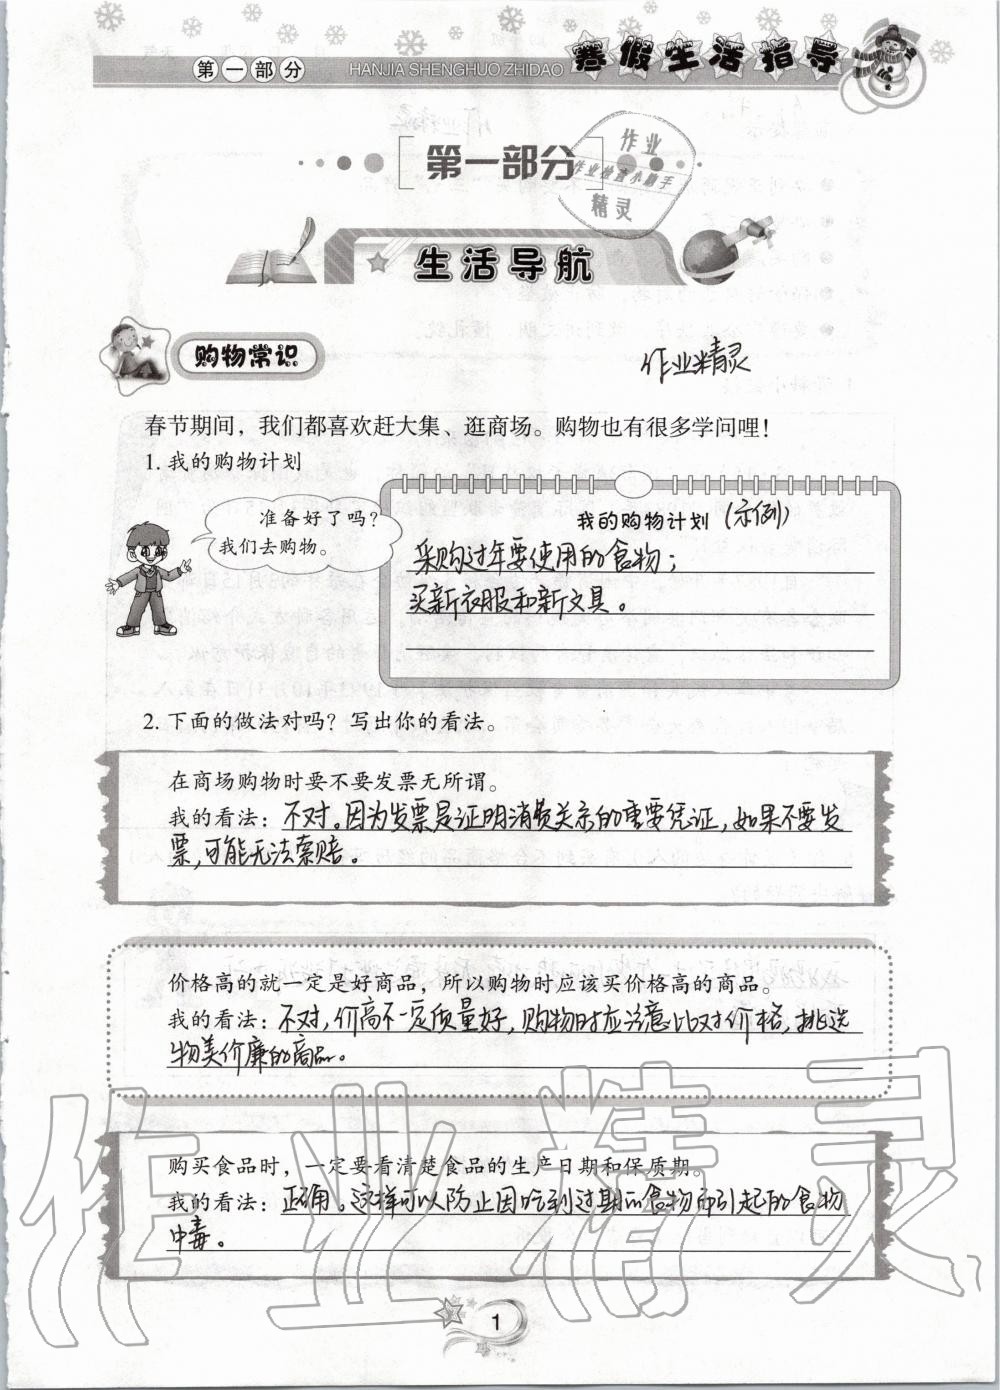 第一部分
HANJIA SHENGHUO ZHIDAO
寒假生活指导
第一部分
作业
作业检查小助手
精灵
生活导航
购物常识
作业精灵
春节期间，我们都喜欢赶大集、逛商场。购物也有很多学问哩！
1. 我的购物计划
准备好了吗？
我们去购物。
我的购物计划（示例）
采购过年要使用的食物；
买新衣服和新文具。
2. 下面的做法对吗？写出你的看法。
在商场购物时要不要发票无所谓。
我的看法：不对。因为发票是证明消费关系的重要凭证，如果不要发
票，可能无法索赔。
价格高的就一定是好商品，所以购物时应该买价格高的商品。
我的看法：不对，价高不一定质量好，购物时应注意比对价格，挑选
物美价廉的商品。
购买食品时，一定要看清楚食品的生产日期和保质期。
我的看法：正确。这样可以防止因吃到过期的食物而引起的食物
中毒。
作业精灵
1